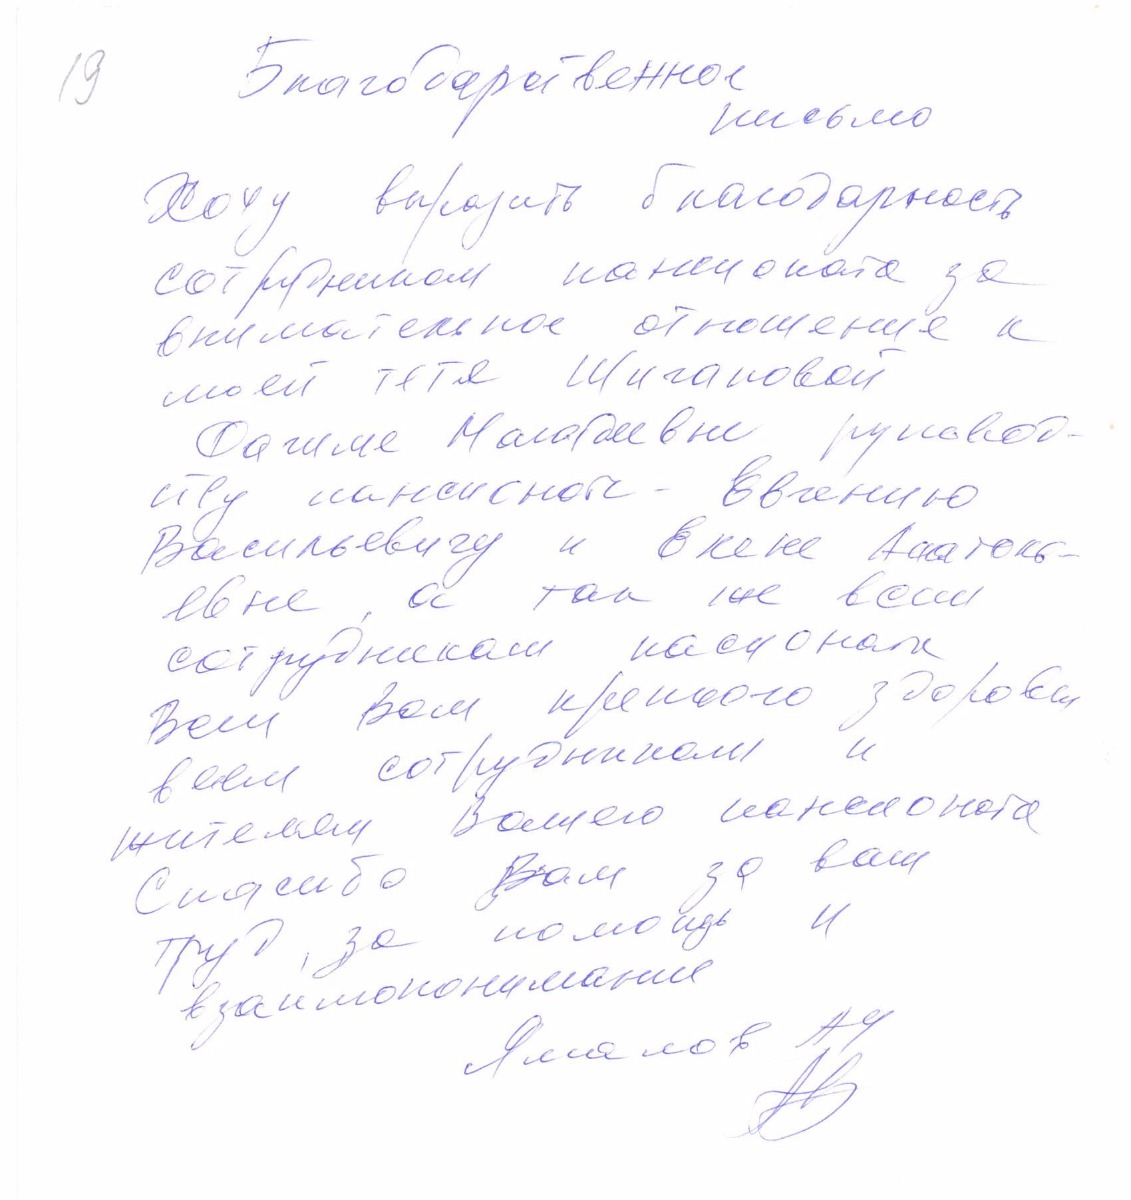 19
Благодарственное
письмо
Хочу выразить благодарность
сотрудникам пансионата за
внимательное отношение к
моей тётя Шигаповой
Фагиме руковод-
ству пансионата - Евгению
Васильевичу и Елене Анатоль-
евне, а так же всем
сотрудникам пасионата
Всем Вам крепкого здоровья
всем сотрудникам и
жителям Вашего пансионата
Спасибо Вам за ваш
труд, за помощь и
взаимопонимание
Ямалов